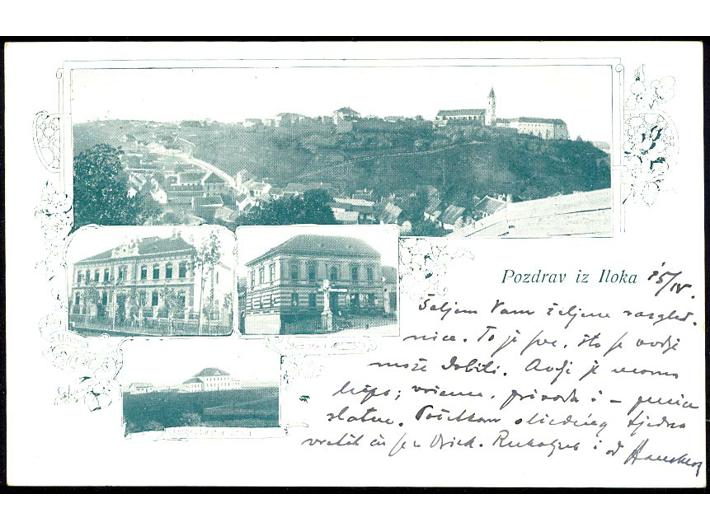 Pozdrav iz Iloka 15/IV.
Šaljem Vam željene razgled-
nice. To je sve, što se ovdje
može dobiti. Ovdje je veoma
lepo; vrieme, priroda i –
zlatne. Početkom sliedećeg tjedna
vratit ću se u Osiek. Rukoljub i od